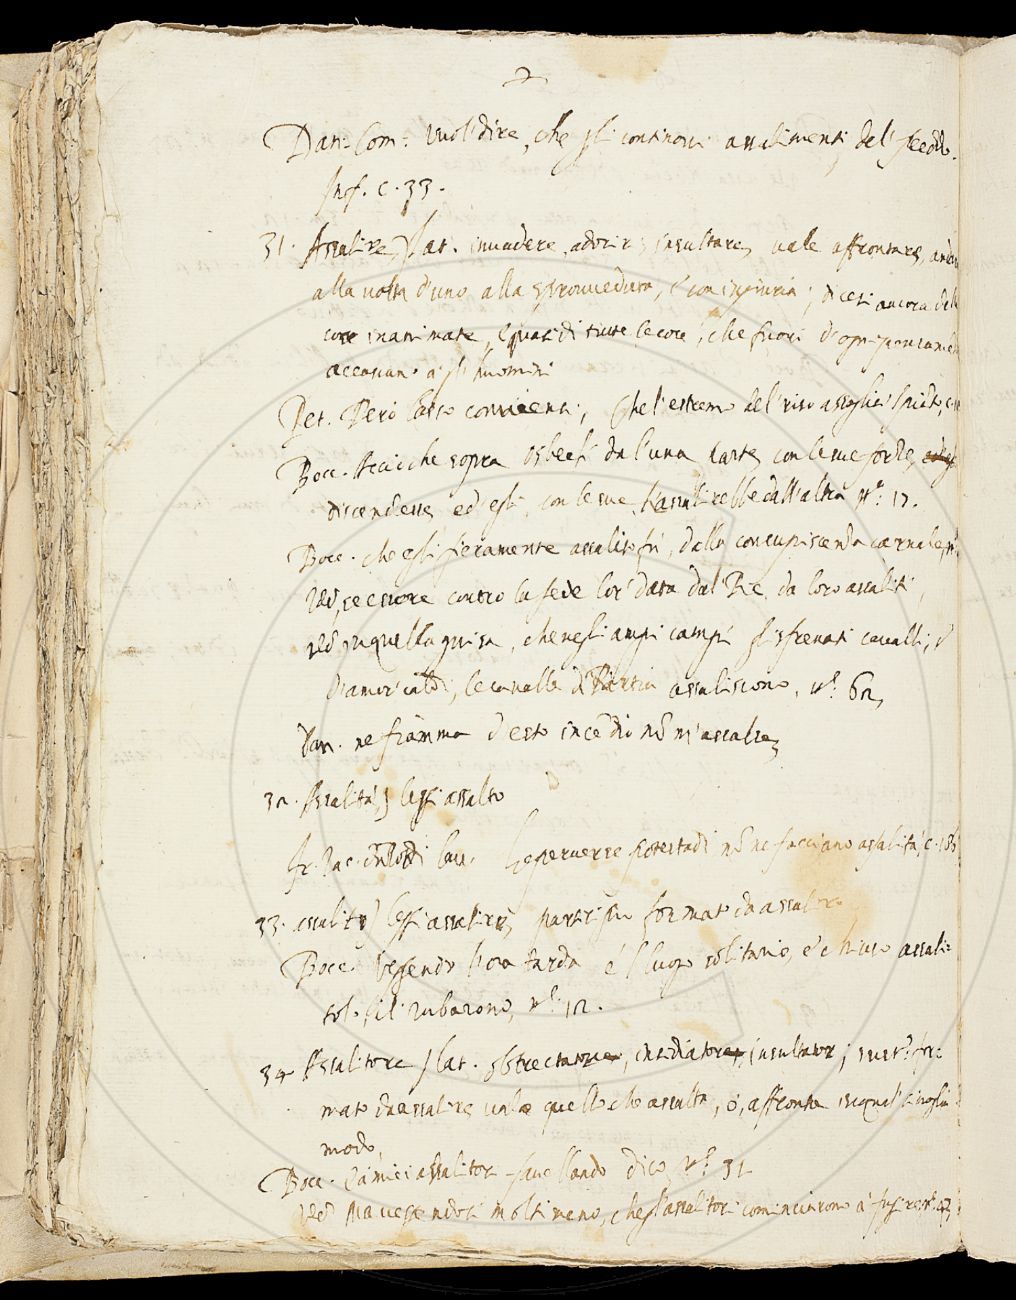 Dan. Com: vuol dire, che gli continovi assalimenti, del freddo.
Inf. c. 33.
31. Assalire) lat. invadere, adorir, insultare, vale affrontare,
alla volta d'uno alla sprovveduta, con ingiuria; dicesi ancora
cose inanimate, quasi di tutte le cose, che fuori d'ogni
accascan a gli huomini
Pet. Però lasso convienti, che l'estremo del riso assaglia
Bocc. Acciò che sopra Osbech dall'una parte con le sue forze
discendesse, ed egli con le sue l'assalirebbe dall'altra n.° 17.
Bocc. che egli fieramente assalito fù, dalla concupiscenza carnale,
essere contro la fede lor data dal Re, da loro assaliti,
in quella guisa, che negli ampi campi gli sfrenati cavalli,
d'amor caldi, le cavalle di Partia assaliscono, n.° 62,
Dan. ne fiamma d'esto incēdio nō m'assale,
32. Assalita, leggi assalto
le perverse potestadi nō ne facciano assalita, c.
33. assalito) leggi assalire, formato da assalire
Bocc. veggendo l'ora tarda è l luogo solitario, e chiuso assali=
tol, il rubarono, n.° 12.
34 Assalitore) lat. obtrectator, insidiator, insultator; for=
mato da assalire, vale quello che assalta, ò, affronta
modo,
Bocc. l'amici assalitor favellando dico, n.° 31
Ma veggendosi molti meno, che gl'assalitori cominciarono à fuggire, n.°